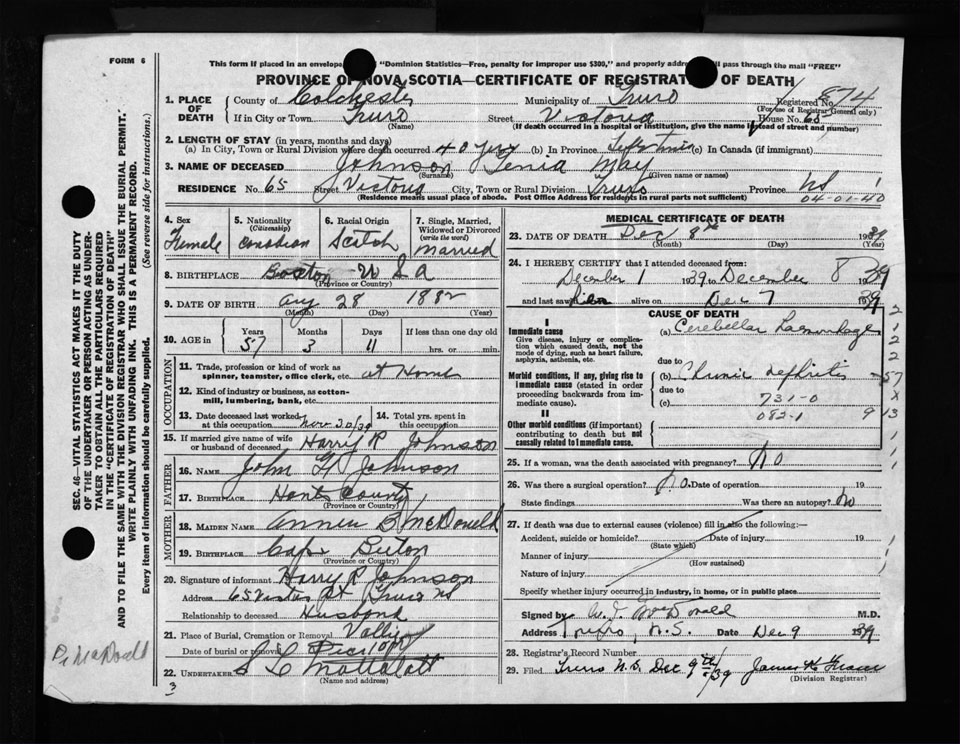 FORM 6
This form if placed in an envelope "Dominion Statistics—Free, penalty for improper use $300," and properly address ll pass through the mail "FREE"
PROVINCE OF NOVA SCOTIA—CERTIFICATE OF REGISTRAT OF DEATH
1. PLACE OF DEATH County of Colchester Municipality of Truro Registered No. 874
(For use of Registrar General only)
If in City or Town Truro Street Victoria House No. 65
(Name) (If death occurred in a hospital or institution, give the name instead of street and number)
2. LENGTH OF STAY (in years, months and days)
(a) In City, Town or Rural Division where death occurred 40 yrs (b) In Province Lifetime (c) In Canada (if immigrant)
3. NAME OF DECEASED Johnson May
(Surname) (Given name or names)
RESIDENCE No. 65 Street Victoria City, Town or Rural Division Truro Province NS
(Residence means usual place of abode. Post Office Address for residents in rural parts not sufficient) 04-01-40
4. Sex Female
5. Nationality (Citizenship) Canadian
6. Racial Origin Scotch
7. Single, Married, Widowed or Divorced (write the word) Married
8. BIRTHPLACE Boston U S A
(Province or Country)
9. DATE OF BIRTH Aug 28 1882
(Month) (Day) (Year)
10. AGE in Years 57 Months 3 Days 11 If less than one day old hrs. or min.
OCCUPATION
11. Trade, profession or kind of work as spinner, teamster, office clerk, etc. At Home
12. Kind of industry or business, as cotton-mill, lumbering, bank, etc.
13. Date deceased last worked at this occupation Nov 30/39
14. Total yrs. spent in this occupation
15. If married give name of wife or husband of deceased Harry R Johnson
FATHER
16. NAME John G Johnson
17. BIRTHPLACE Hants County
(Province or Country)
MOTHER
18. MAIDEN NAME Annie B McDonald
19. BIRTHPLACE Cape Breton
(Province or Country)
20. Signature of informant Harry R Johnson
Address 65 Victoria St Truro NS
Relationship to deceased Husband
21. Place of Burial, Cremation or Removal Valley
Date of burial or removal Dec 10/39
22. UNDERTAKER
(Name and address)
3
MEDICAL CERTIFICATE OF DEATH
23. DATE OF DEATH Dec 8th 1939
(Month) (Day) (Year)
24. I HEREBY CERTIFY that I attended deceased from:
December 1 1939 to December 8 1939
and last saw alive on Dec 7 1939
CAUSE OF DEATH
I
Immediate cause
Give disease, injury or complication which caused death, not the mode of dying, such as heart failure, asphyxia, asthenia, etc.
(a) Cerebellar Haemorrhage
due to
Morbid conditions, if any, giving rise to immediate cause (stated in order proceeding backwards from immediate cause).
(b) Chronic nephritis
due to
(c) 731-0
082-1
II
Other morbid conditions (if important) contributing to death but not causally related to immediate cause.
25. If a woman, was the death associated with pregnancy? No
26. Was there a surgical operation? No Date of operation 19
State findings Was there an autopsy? No
27. If death was due to external causes (violence) fill in also the following:—
Accident, suicide or homicide? Date of injury 19
(State which)
Manner of injury
(How sustained)
Nature of injury
Specify whether injury occurred in industry, in home, or in public place
Signed by McDonald M.D.
Address Truro, N.S. Date Dec 9 1939
28. Registrar's Record Number
29. Filed Truro N.S. Dec 9th/39 James K Fraser
(Division Registrar)
SEC. 46—VITAL STATISTICS ACT MAKES IT THE DUTY
OF THE UNDERTAKER OR PERSON ACTING AS UNDER-
TAKER TO OBTAIN ALL THE PARTICULARS REQUIRED
IN THE "CERTIFICATE OF REGISTRATION OF DEATH"
AND TO FILE THE SAME WITH THE DIVISION REGISTRAR WHO SHALL ISSUE THE BURIAL PERMIT.
WRITE PLAINLY WITH UNFADING INK. THIS IS A PERMANENT RECORD.
Every item of information should be carefully supplied. (See reverse side for instructions.)
McDonald